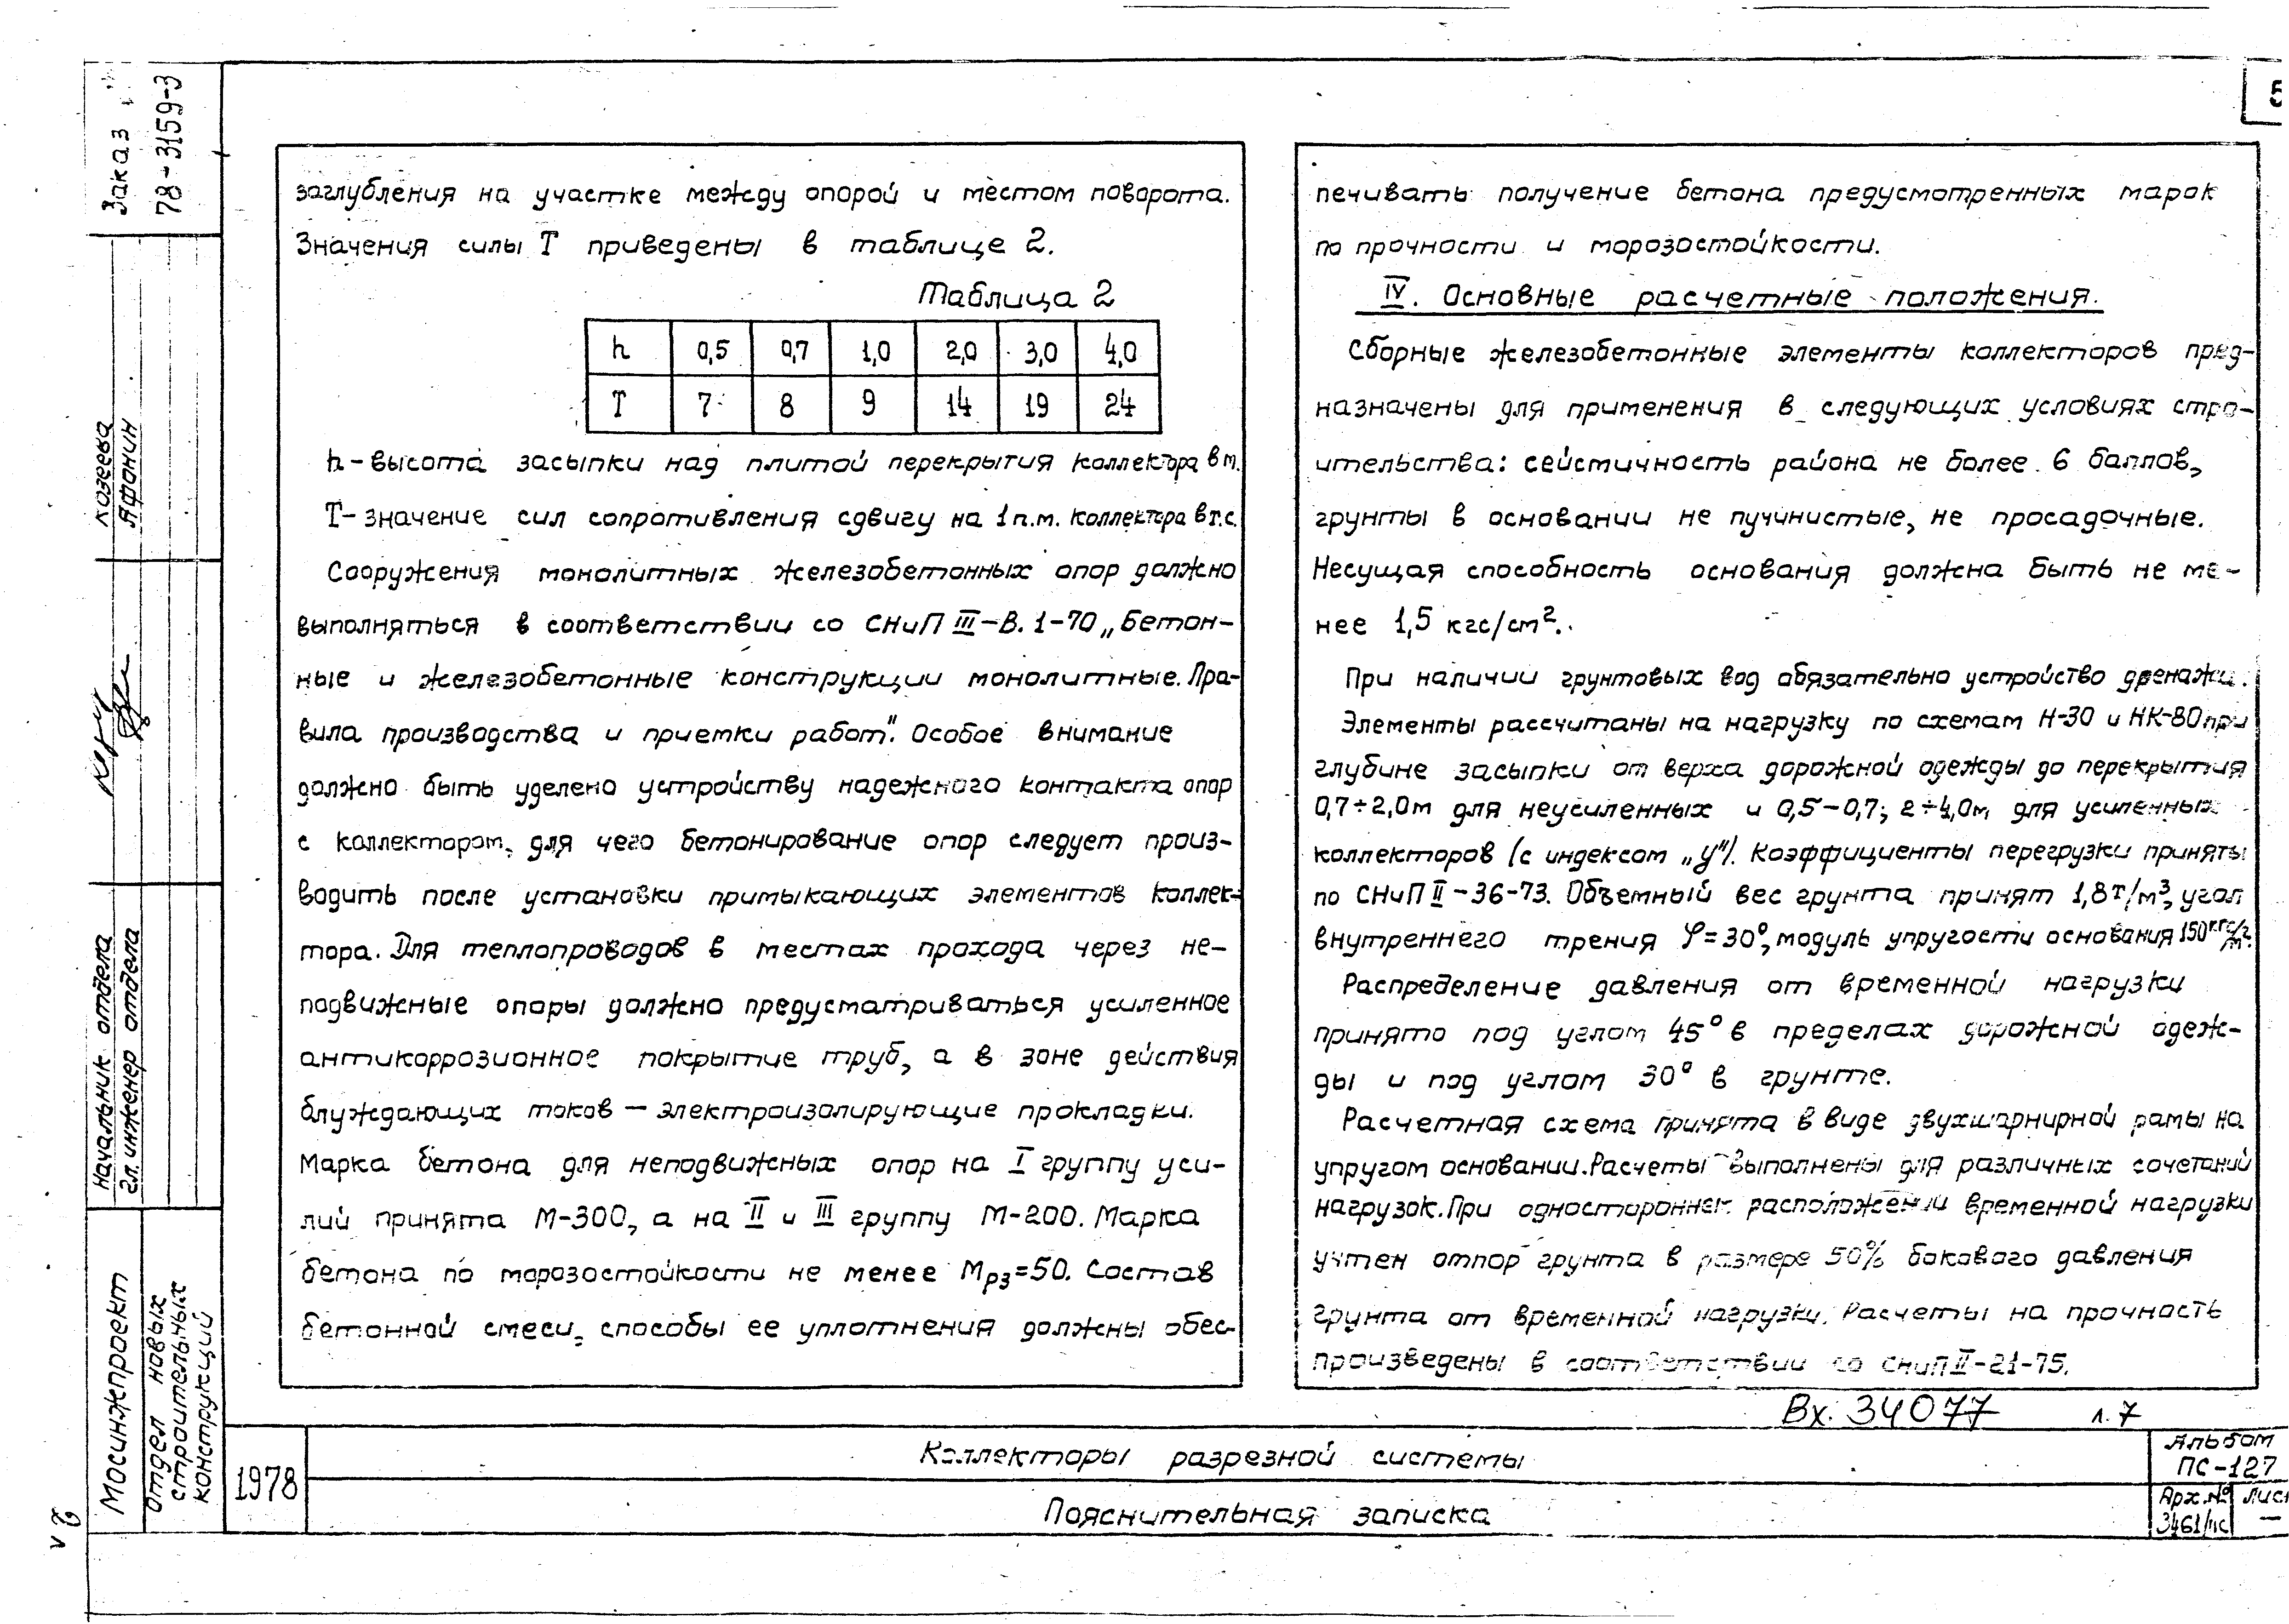 5
Заказ
78-3159-3
Козеева
Афонин
Начальник отдела
Гл. инженер отдела
Мосинжпроект
Отдел новых
строительных
конструкций
заглубления на участке между опорой и местом поворота.
Значения силы Т приведены в таблице 2.
Таблица 2
h 0,5 0,7 1,0 2,0 3,0 4,0
Т 7 8 9 14 19 24
h – высота засыпки над плитой перекрытия коллектора в м.
Т – значение сил сопротивления сдвигу на 1 п.м. коллектора в т.с.
Сооружения монолитных железобетонных опор должно
выполняться в соответствии со СНиП III-В. 1-70 „Бетон-
ные и железобетонные конструкции монолитные. Пра-
вила производства и приемки работ". Особое внимание
должно быть уделено устройству надежного контакта опор
с коллектором, для чего бетонирование опор следует произ-
водить после установки примыкающих элементов коллек-
тора. Для теплопроводов в местах прохода через не-
подвижные опоры должно предусматриваться усиленное
антикоррозионное покрытие труб, а в зоне действия
блуждающих токов – электроизолирующие прокладки.
Марка бетона для неподвижных опор на I группу уси-
лий принята М-300, а на II и III группу М-200. Марка
бетона по морозостойкости не менее Мрз=50. Состав
бетонной смеси, способы ее уплотнения должны обес-
печивать получение бетона предусмотренных марок
по прочности и морозостойкости.
IV. Основные расчетные положения.
Сборные железобетонные элементы коллекторов пред-
назначены для применения в следующих условиях стро-
ительства: сейсмичность района не более 6 баллов,
грунты в основании не пучинистые, не просадочные.
Несущая способность основания должна быть не ме-
нее 1,5 кгс/см².
При наличии грунтовых вод обязательно устройство дренажа.
Элементы рассчитаны на нагрузку по схемам Н-30 и НК-80 при
глубине засыпки от верха дорожной одежды до перекрытия
0,7÷2,0м для неусиленных и 0,5-0,7; 2÷4,0м для усиленных
коллекторов (с индексом „У"). Коэффициенты перегрузки приняты
по СНиП II-36-73. Объемный вес грунта принят 1,8 т/м³, угол
внутреннего трения φ=30°, модуль упругости основания 150 кгс/
Распределение давления от временной нагрузки
принято под углом 45° в пределах дорожной одеж-
ды и под углом 30° в грунте.
Расчетная схема принята в виде двухшарнирной рамы на
упругом основании. Расчеты выполнены для различных сочетаний
нагрузок. При одностороннем расположении временной нагрузки
учтен отпор грунта в размере 50% бокового давления
грунта от временной нагрузки. Расчеты на прочность
произведены в соответствии со СНиП II-21-75.
Вх. 34077 л. 7
1978
Коллекторы разрезной системы
Пояснительная записка
Альбом
ПС-127
Арх. № Лист
3461/пс –